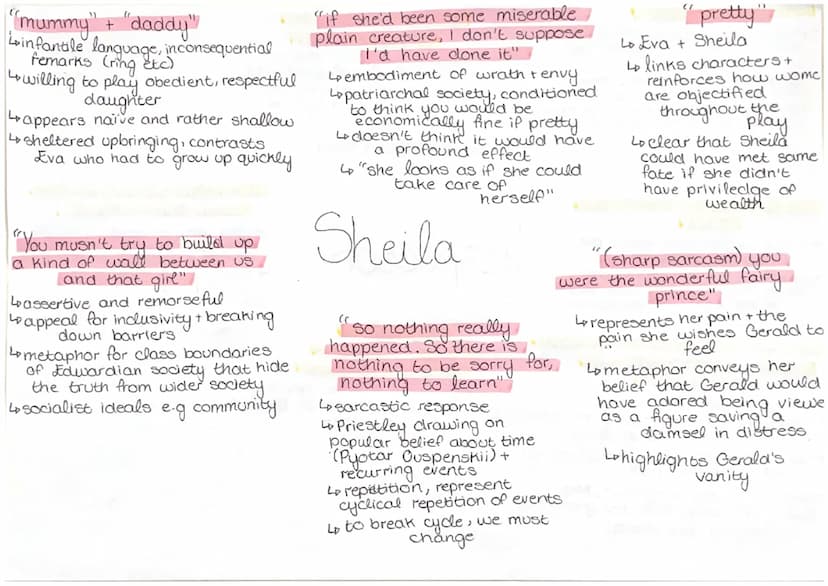 "mummy" + "daddy"
↳infantile language, inconsequential
remarks (ring etc)
↳willing to play obedient, respectful
daughter
↳appears naive and rather shallow
↳sheltered upbringing, contrasts
Eva who had to grow up quickly
"if she'd been some miserable
plain creature, I don't suppose
I'd have done it"
↳embodiment of wrath + envy
↳patriarchal society, conditioned
to think you would be
economically fine if pretty
↳doesn't think it would have
a profound effect
↳"she looks as if she could
take care of
herself"
"pretty"
↳Eva + Sheila
↳links characters +
reinforces how wome
are objectified
throughout the
play
↳clear that Sheila
could have met same
fate if she didn't
have priviledge of
wealth
Sheila
"You musn't try to build up
a kind of wall between us
and that girl"
↳assertive and remorseful
↳appeal for inclusivity + breaking
down barriers
↳metaphor for class boundaries
of Edwardian society that hide
the truth from wider society
↳socialist ideals e.g community
"so nothing really
happened. So there is
nothing to be sorry for,
nothing to learn"
↳sarcastic response
↳Priestley drawing on
popular belief about time
(Pyotar Ouspenskii) +
recurring events
↳repitition, represent
cyclical repetition of events
↳to break cycle, we must
change
"(sharp sarcasm) you
were the wonderful fairy
prince"
↳represents her pain + the
pain she wishes Gerald to
feel
↳metaphor conveys her
belief that Gerald would
have adored being viewe
as a figure saving a
damsel in distress
↳highlights Gerald's
vanity